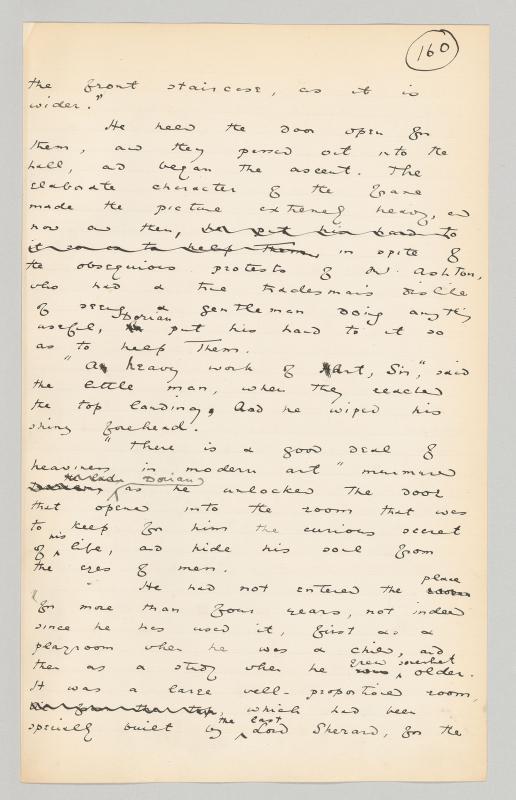 160
the front staircase, as it is
wider."
He held the door open for
them, and they passed out into the
hall, and began the ascent. The
elaborate character of the frame
made the picture extremely heavy, and
now and then, he put his hand to
it so as to help them, in spite of
the obsequious protests of Mr. Ashton,
who had a true tradesman's dislike
of seeing a gentleman doing anything
useful, Dorian put his hand to it so
as to help them.
"A heavy work of Art, Sir," said
the little man, when they reached
the top landing, And he wiped his
shiny forehead.
"There is a good deal of
heaviness in modern art" murmured
Dorian
as he unlocked the door
that opened into the room that was
to keep for him the curious secret
of his life, and hide his soul from
the eyes of men.
He had not entered the place
for more than four years, not indeed
since he has used it, first as a
playroom when he was a child, and
then as a study when he grew somewhat older.
It was a large well-proportioned room,
which had been
specially built by the last Lord Sherard, for the